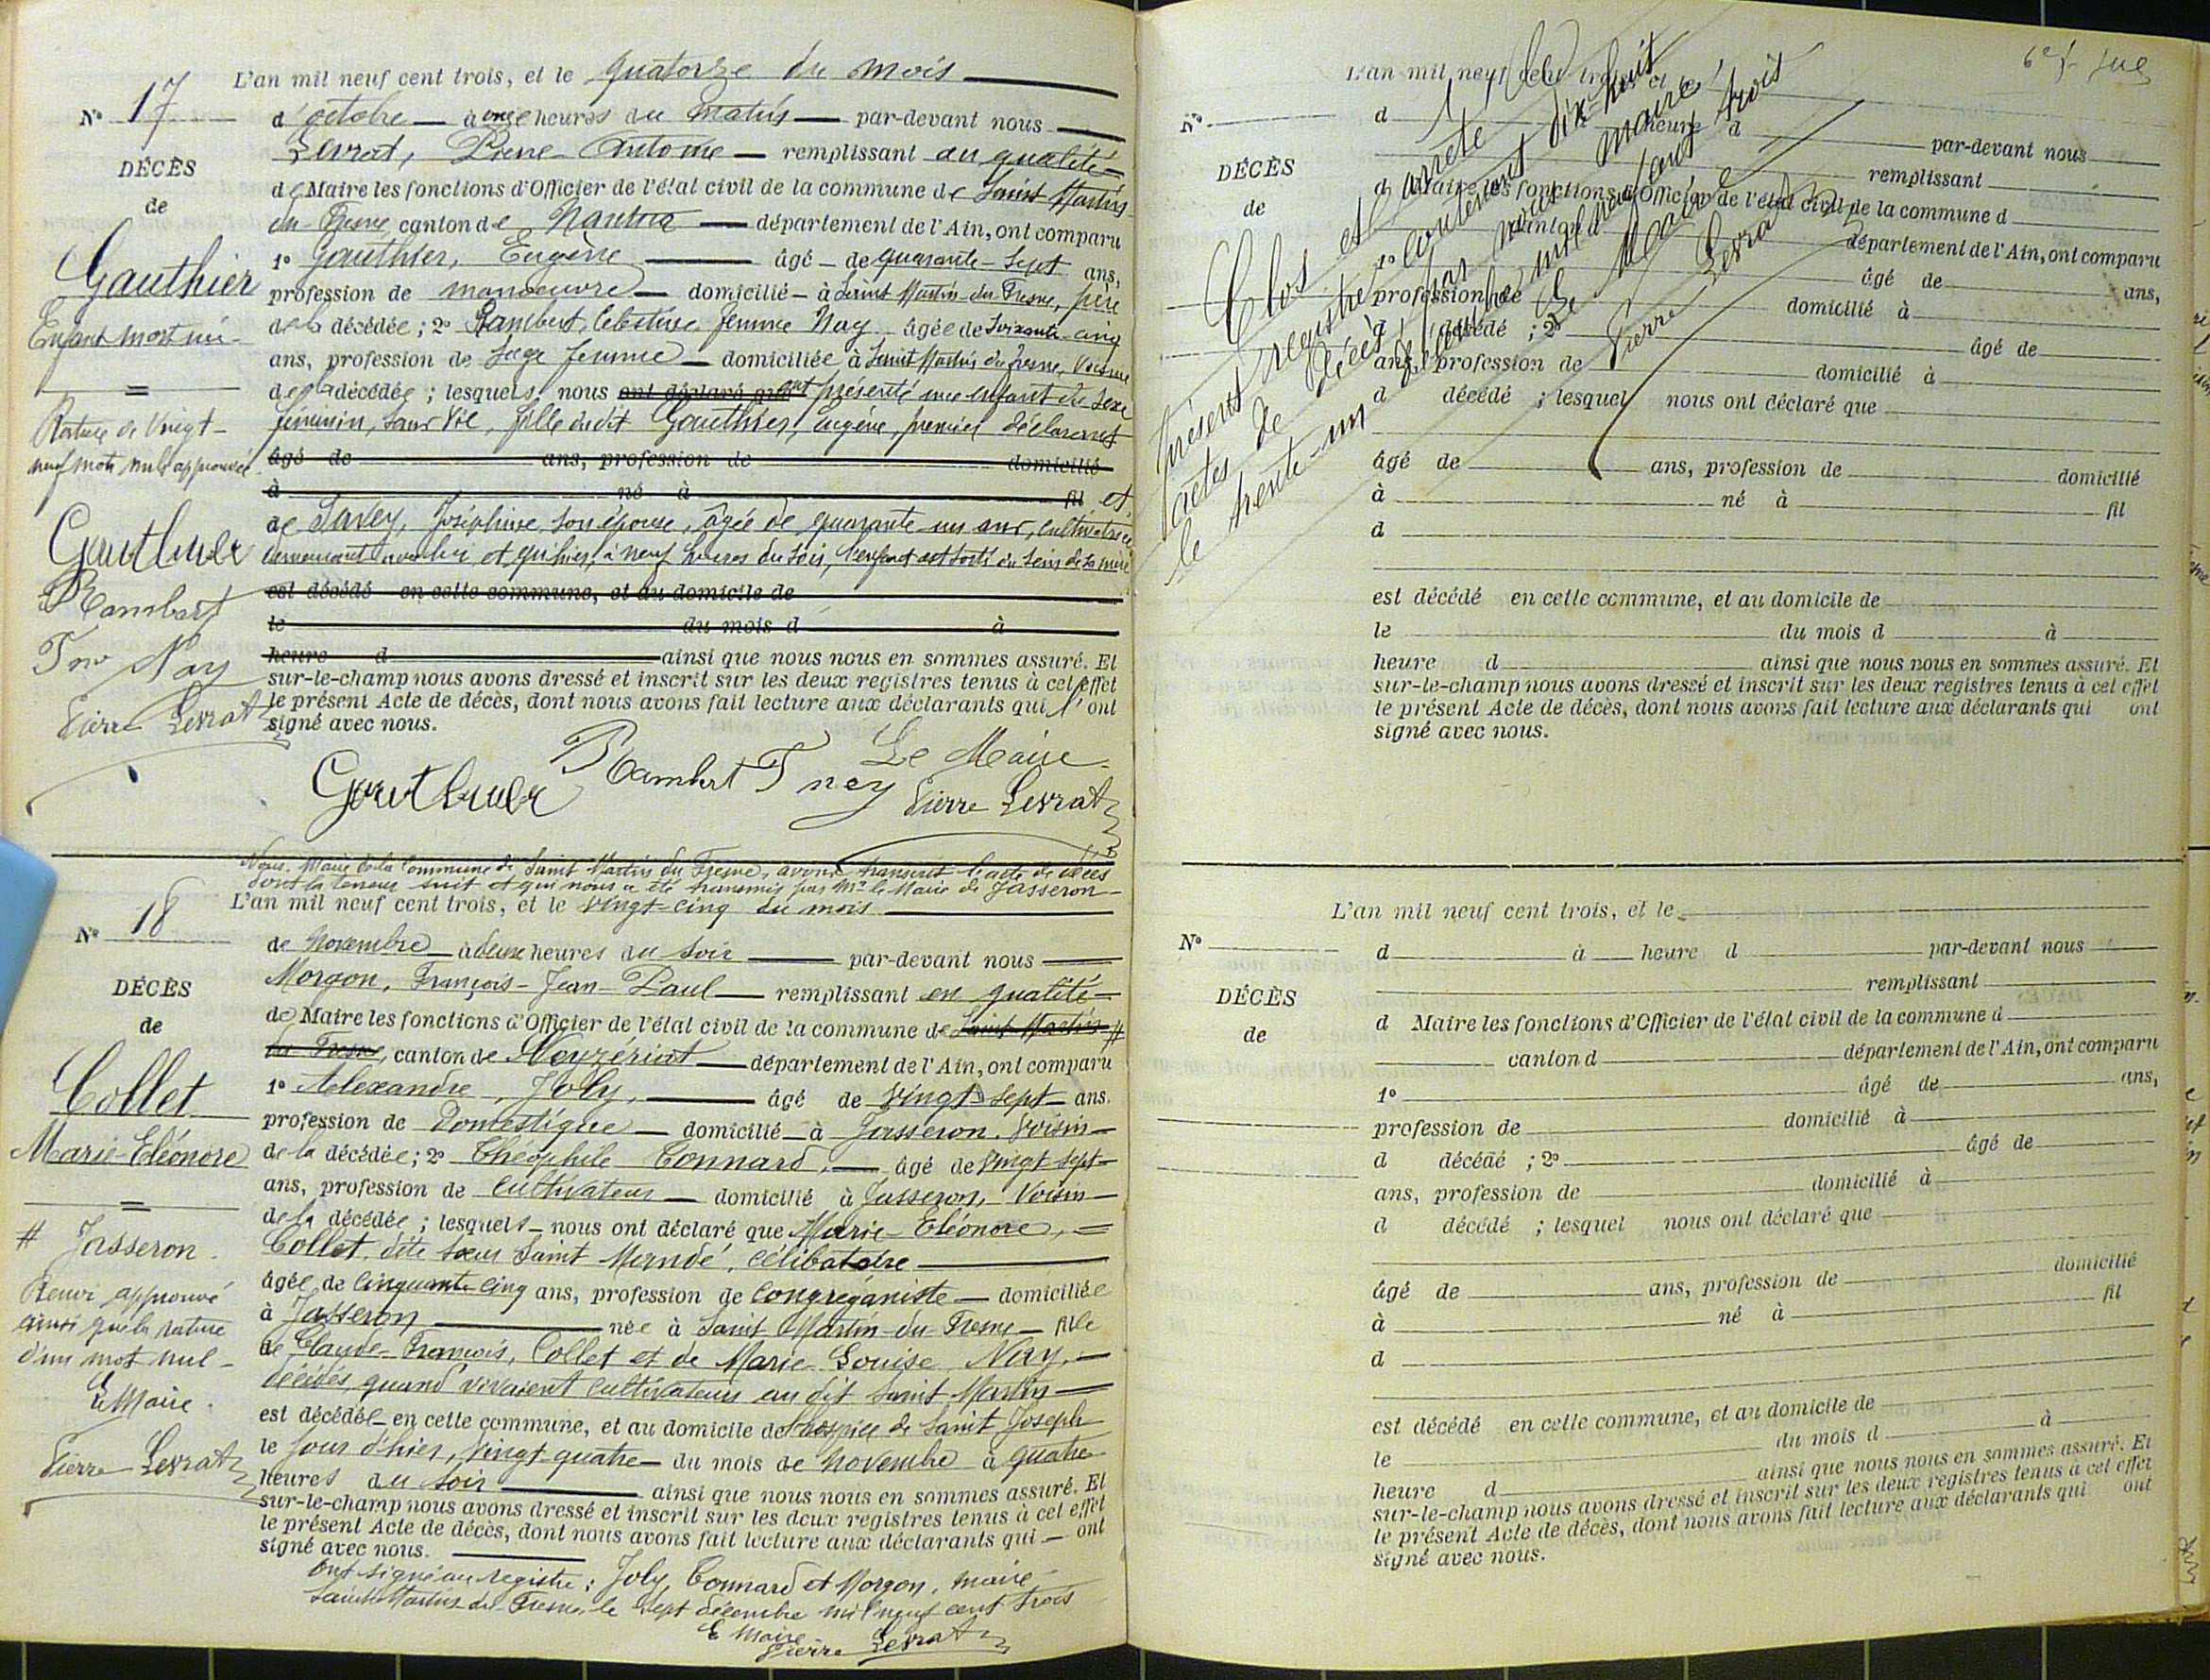 L'an mil neuf cent trois, et le quatorze du mois
N° 17
d'octobre à onze heures du matin par-devant nous
Levrat, Pierre-Antoine remplissant en qualité
DÉCÈS
de Maire les fonctions d'Officier de l'état civil de la commune de Saint Martin
de
du-Fresne, canton de Nantua département de l'Ain, ont comparu
Gauthier
1° Gauthier, Eugène âgé de quarante-sept ans,
profession de manoeuvre domicilié à Saint Martin-du-Fresne, père
Enfant mort né
de la décédée ; 2° Rambert, Célestine femme Nay âgée de soixante cinq
ans, profession de Sage femme domiciliée à Saint Martin du Fresne, Voisine
de la décédée ; lesquels nous ont déclaré que ont présenté une enfant du sexe
Rature de Vingt-
féminin, sans vie, fille dudit Gauthier, Eugène, premier déclarant
neuf mots nuls approuvée
âgé de ans, profession de domicilié
à né à fil et
Gauthier
de Savey, Joséphine son épouse, âgée de quarante un ans, cultivatrice
demeurant avec lui et qu'hier, à neuf heures du soir, l'enfant est sorti du sein de sa mère
Rambert
est décédé en cette commune, et au domicile de
le du mois d à
Fme Nay
heure d ainsi que nous nous en sommes assuré. Et
sur-le-champ nous avons dressé et inscrit sur les deux registres tenus à cet effet
Pierre Levrat
le présent Acte de décès, dont nous avons fait lecture aux déclarants qui l'ont
signé avec nous.
Le Maire
Gauthier Rambert F nay Pierre Levrat
Nous, Maire de la Commune de Saint Martin du Fresne, avons transcrit l'acte de décès
dont la teneur suit et qui nous a été transmis par Mr le Maire de Jasseron
L'an mil neuf cent trois, et le vingt-cinq du mois
N° 18
de Novembre à deux heures du soir par-devant nous
DÉCÈS
Morgon, François-Jean-Paul remplissant en qualité
de
de Maire les fonctions d'Officier de l'état civil de la commune de Saint Martin #
du Fresne, canton de Ceyzériat département de l'Ain, ont comparu
Collet
1° Alexandre, Joly, âgé de Vingt sept ans,
profession de Domestique domicilié à Jasseron, voisin
Marie-Eléonore
de la décédée ; 2° Théophile Connard, âgé de Vingt sept
ans, profession de cultivateur domicilié à Jasseron, Voisin
de la décédée ; lesquels nous ont déclaré que Marie-Eléonore,
# Jasseron
Collet, dite soeur Saint Mandé, célibataire
Renvoi approuvé
âgée de cinquante cinq ans, profession de Congréganiste domiciliée
ainsi que la rature
à Jasseron née à Saint Martin-du-Fresne fille
d'un mot nul
de Claude-François, Collet et de Marie Louise Nay,
décédés, quand vivaient cultivateurs au dit Saint Martin
Le Maire
est décédée en cette commune, et au domicile de l'hospice de Saint Joseph
le jour d'hier, vingt-quatre du mois de Novembre à quatre
Pierre Levrat
heures du soir ainsi que nous nous en sommes assuré. Et
sur-le-champ nous avons dressé et inscrit sur les deux registres tenus à cet effet
le présent Acte de décès, dont nous avons fait lecture aux déclarants qui ont
signé avec nous.
Ont signé au registre : Joly, Connard et Morgon, maire
Saint Martin-du-Fresne, le sept décembre mil neuf cent trois
Le Maire
Pierre Levrat
L'an mil neuf cent trois, et le
N°
d à heure d par-devant nous
remplissant
DÉCÈS
d Maire les fonctions d'Officier de l'état civil de la commune d
de
canton d département de l'Ain, ont comparu
1° âgé de ans,
profession de domicilié à
d décédé ; 2° âgé de
ans, profession de domicilié à
d décédé ; lesquel nous ont déclaré que
âgé de ans, profession de domicilié
à né à fil
d
est décédé en cette commune, et au domicile de
le du mois d à
heure d ainsi que nous nous en sommes assuré. Et
sur-le-champ nous avons dressé et inscrit sur les deux registres tenus à cet effet
le présent Acte de décès, dont nous avons fait lecture aux déclarants qui ont
signé avec nous.
Clos et arrêté le
présent registre contenant dix-huit
actes de décès, par nous Maire
le trente-un décembre mil neuf cent trois
Le Maire
Pierre Levrat
L'an mil neuf cent trois, et le
N°
d à heure d par-devant nous
remplissant
DÉCÈS
d Maire les fonctions d'Officier de l'état civil de la commune d
de
canton d département de l'Ain, ont comparu
1° âgé de ans,
profession de domicilié à
d décédé ; 2° âgé de
ans, profession de domicilié à
d décédé ; lesquel nous ont déclaré que
âgé de ans, profession de domicilié
à né à fil
d
est décédé en cette commune, et au domicile de
le du mois d à
heure d ainsi que nous nous en sommes assuré. Et
sur-le-champ nous avons dressé et inscrit sur les deux registres tenus à cet effet
le présent Acte de décès, dont nous avons fait lecture aux déclarants qui ont
signé avec nous.